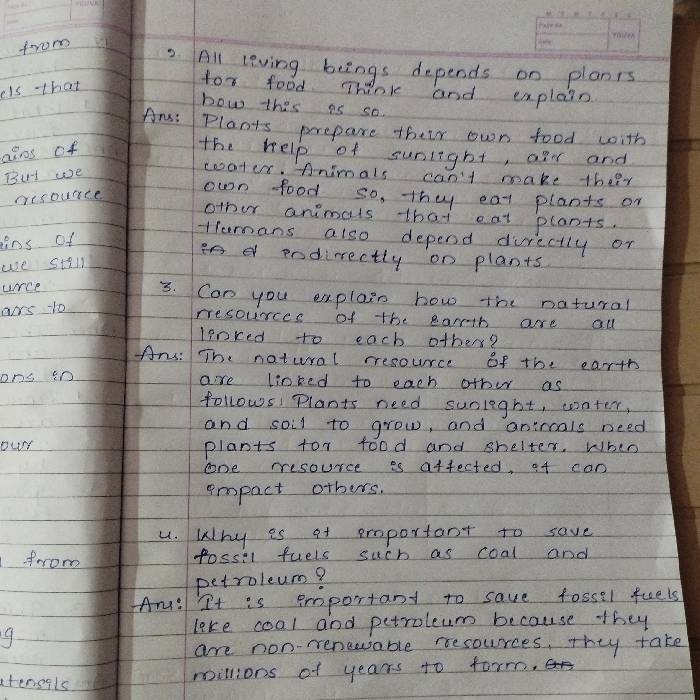 from
els that
ains of
But we
resource
ins of
we still
urce
ars to
ons in
our
from
g
utensils
Page No.
Date
YOUVA
2 All living beings depends on plants
for food. Think and explain
how this is so.
Ans: Plants prepare their own food with
the help of sunlight, air and
water. Animals can't make their
own food so, they eat plants or
other animals that eat plants.
Humans also depend directly or
indirectly on plants
3. Can you explain how the natural
resources of the earth are all
linked to each other?
Ans: The natural resource of the earth
are linked to each other as
follows: Plants need sunlight, water,
and soil to grow, and animals need
plants for food and shelter. When
one resource is affected, it can
impact others.
4. Why is it important to save
fossil fuels such as coal and
petroleum?
Ans: It is important to save fossil fuels
like coal and petroleum because they
are non-renewable resources. they take
millions of years to form.